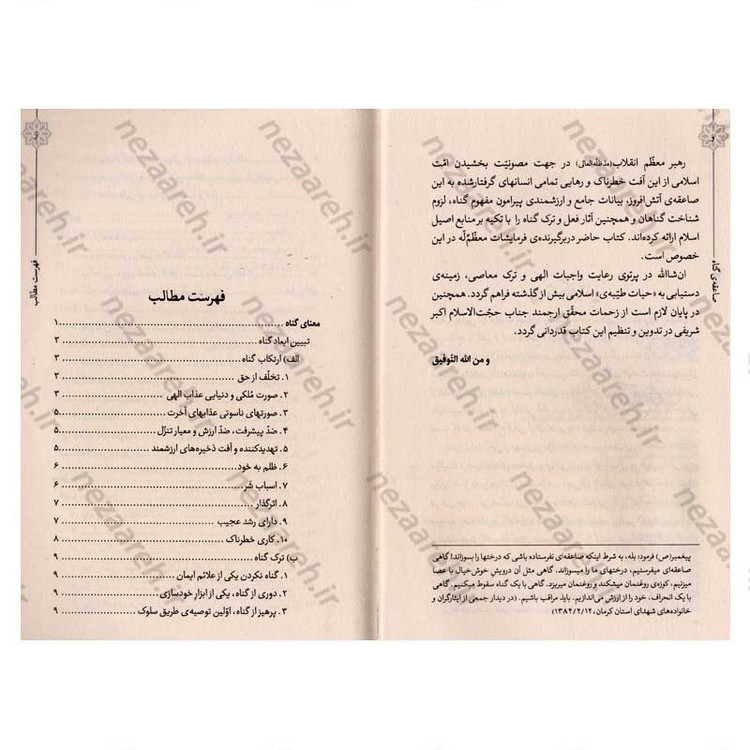 صاعقه‌ی گناه
رهبر معظّم انقلاب(مدّظلّه‌العالی) در جهت مصونیّت بخشیدن امّت
اسلامی از این آفت خطرناک و رهایی تمامی انسانهای گرفتارشده به این
صاعقه‌ی آتش‌افروز، بیانات جامع و ارزشمندی پیرامون مفهوم گناه، لزوم
شناخت گناهان و همچنین آثار فعل و ترک گناه را با تکیه بر منابع اصیل
اسلام ارائه کرده‌اند. کتاب حاضر دربرگیرنده‌ی فرمایشات معظّم‌ٌله در این
خصوص است.
ان‌شاالله در پرتوی رعایت واجبات الهی و ترک معاصی، زمینه‌ی
دستیابی به «حیات طیّبه‌ی» اسلامی بیش از گذشته فراهم گردد. همچنین
در پایان لازم است از زحمات محقّق ارجمند جناب حجّت‌الاسلام اکبر
شریفی در تدوین و تنظیم این کتاب قدردانی گردد.
و من الله التّوفیق
پیغمبر(ص) فرمود: بله، به شرط اینکه صاعقه‌ای نفرستاده باشی که درختها را بسوزاند! گاهی
صاعقه‌ای میفرستیم، درختهای ما را میسوزاند. گاهی مثل آن درویشِ خوش‌خیال با عصا
میزنیم، کوزه‌ی روغنمان میشکند و روغنمان میریزد. گاهی با یک گناه سقوط میکنیم. گاهی
با یک انحراف، خود را از ارزش می‌اندازیم. باید مراقب باشیم. (در دیدار جمعی از ایثارگران و
خانواده‌های شهدای استان کرمان، ۱۳۸۴/۲/۱۲)
فهرست مطالب
فهرست مطالب
معنای گناه ........................................ ۱
تبیین ابعاد گناه ........................................ ۳
الف) ارتکاب گناه ........................................ ۳
۱. تخلّف از حق ........................................ ۳
۲. صورت مُلکی و دنیایی عذاب الهی ........................................ ۳
۳. صورتهای ناسوتی عذابهای آخرت ........................................ ۵
۴. ضدّ پیشرفت، ضدّ ارزش و معیار تنزّل ........................................ ۵
۵. تهدیدکننده و آفت ذخیره‌های ارزشمند ........................................ ۵
۶. ظلم به خود ........................................ ۶
۷. اسباب شر ........................................ ۶
۸. اثرگذار ........................................ ۷
۹. دارای رشد عجیب ........................................ ۷
۱۰. کاری خطرناک ........................................ ۸
ب) ترک گناه ........................................ ۹
۱. گناه نکردن یکی از علائم ایمان ........................................ ۹
۲. دوری از گناه، یکی از ابزارِ خودسازی ........................................ ۹
۳. پرهیز از گناه، اوّلین توصیه‌ی طریق سلوک ........................................ ۹
nezaareh.ir
nezaareh.ir
nezaareh.ir
nezaareh.ir
nezaareh.ir
nezaareh.ir